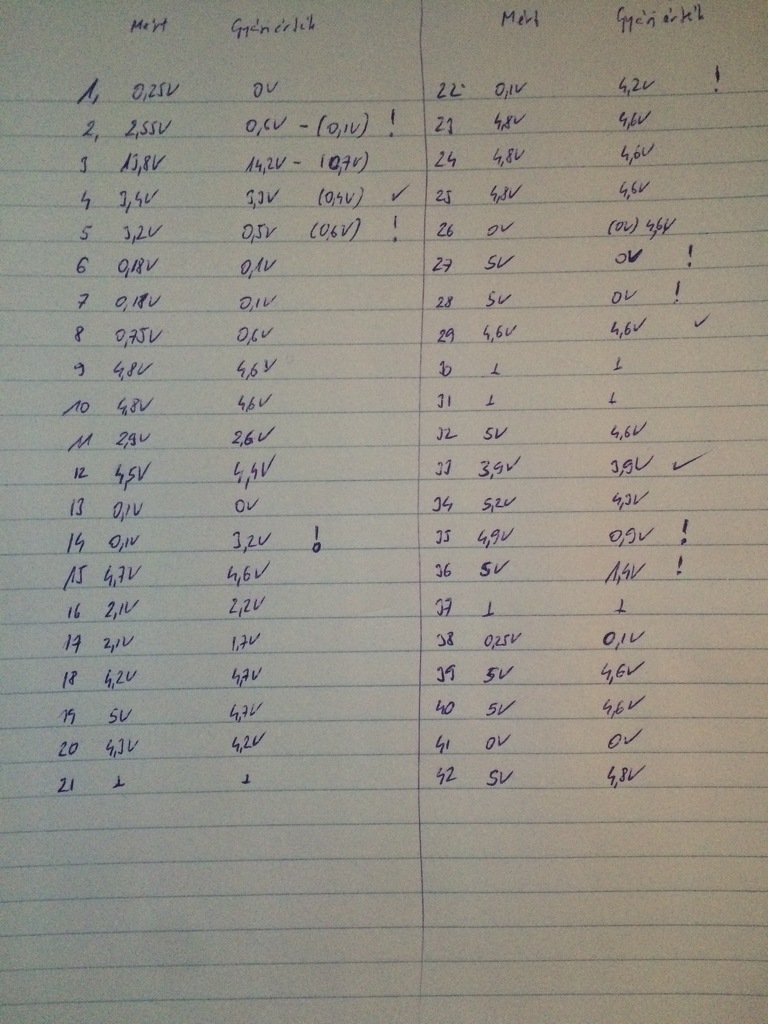 Mért Gyári érték
1, 0,25V 0V
2, 2,55V 0,6V - (0,1V) !
3 13,8V 14,2V - (0,7V)
4 3,4V 3,3V (0,4V) ✓
5 3,2V 0,5V (0,6V) !
6 0,18V 0,1V
7 0,18V 0,1V
8 0,75V 0,6V
9 4,8V 4,6V
10 4,8V 4,6V
11 2,9V 2,6V
12 4,5V 4,4V
13 0,1V 0V
14 0,1V 3,2V !
15 4,7V 4,6V
16 2,1V 2,2V
17 2,1V 1,7V
18 4,2V 4,7V
19 5V 4,7V
20 4,3V 4,2V
21 ⊥ ⊥
Mért Gyári érték
22 0,1V 4,2V !
23 4,8V 4,6V
24 4,8V 4,6V
25 4,8V 4,6V
26 0V (0V) 4,6V
27 5V 0V !
28 5V 0V !
29 4,6V 4,6V ✓
30 ⊥ ⊥
31 ⊥ ⊥
32 5V 4,6V
33 3,9V 3,9V ✓
34 5,2V 4,3V
35 4,9V 0,9V !
36 5V 1,4V !
37 ⊥ ⊥
38 0,25V 0,1V
39 5V 4,6V
40 5V 4,6V
41 0V 0V
42 5V 4,8V